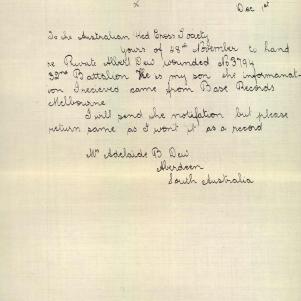 Dec 1st
To the Australian Red Cross Society
Yours of 28th November to hand
re Private Albert Dew wounded No 3794
32nd Battalion He is my son the informanat-
ion I recieved came from Base Records
Melbourne
I will send the notifation but please
return same as I want it as a record
Mrs Adelaide B Dew
Aberdeen
South Australia